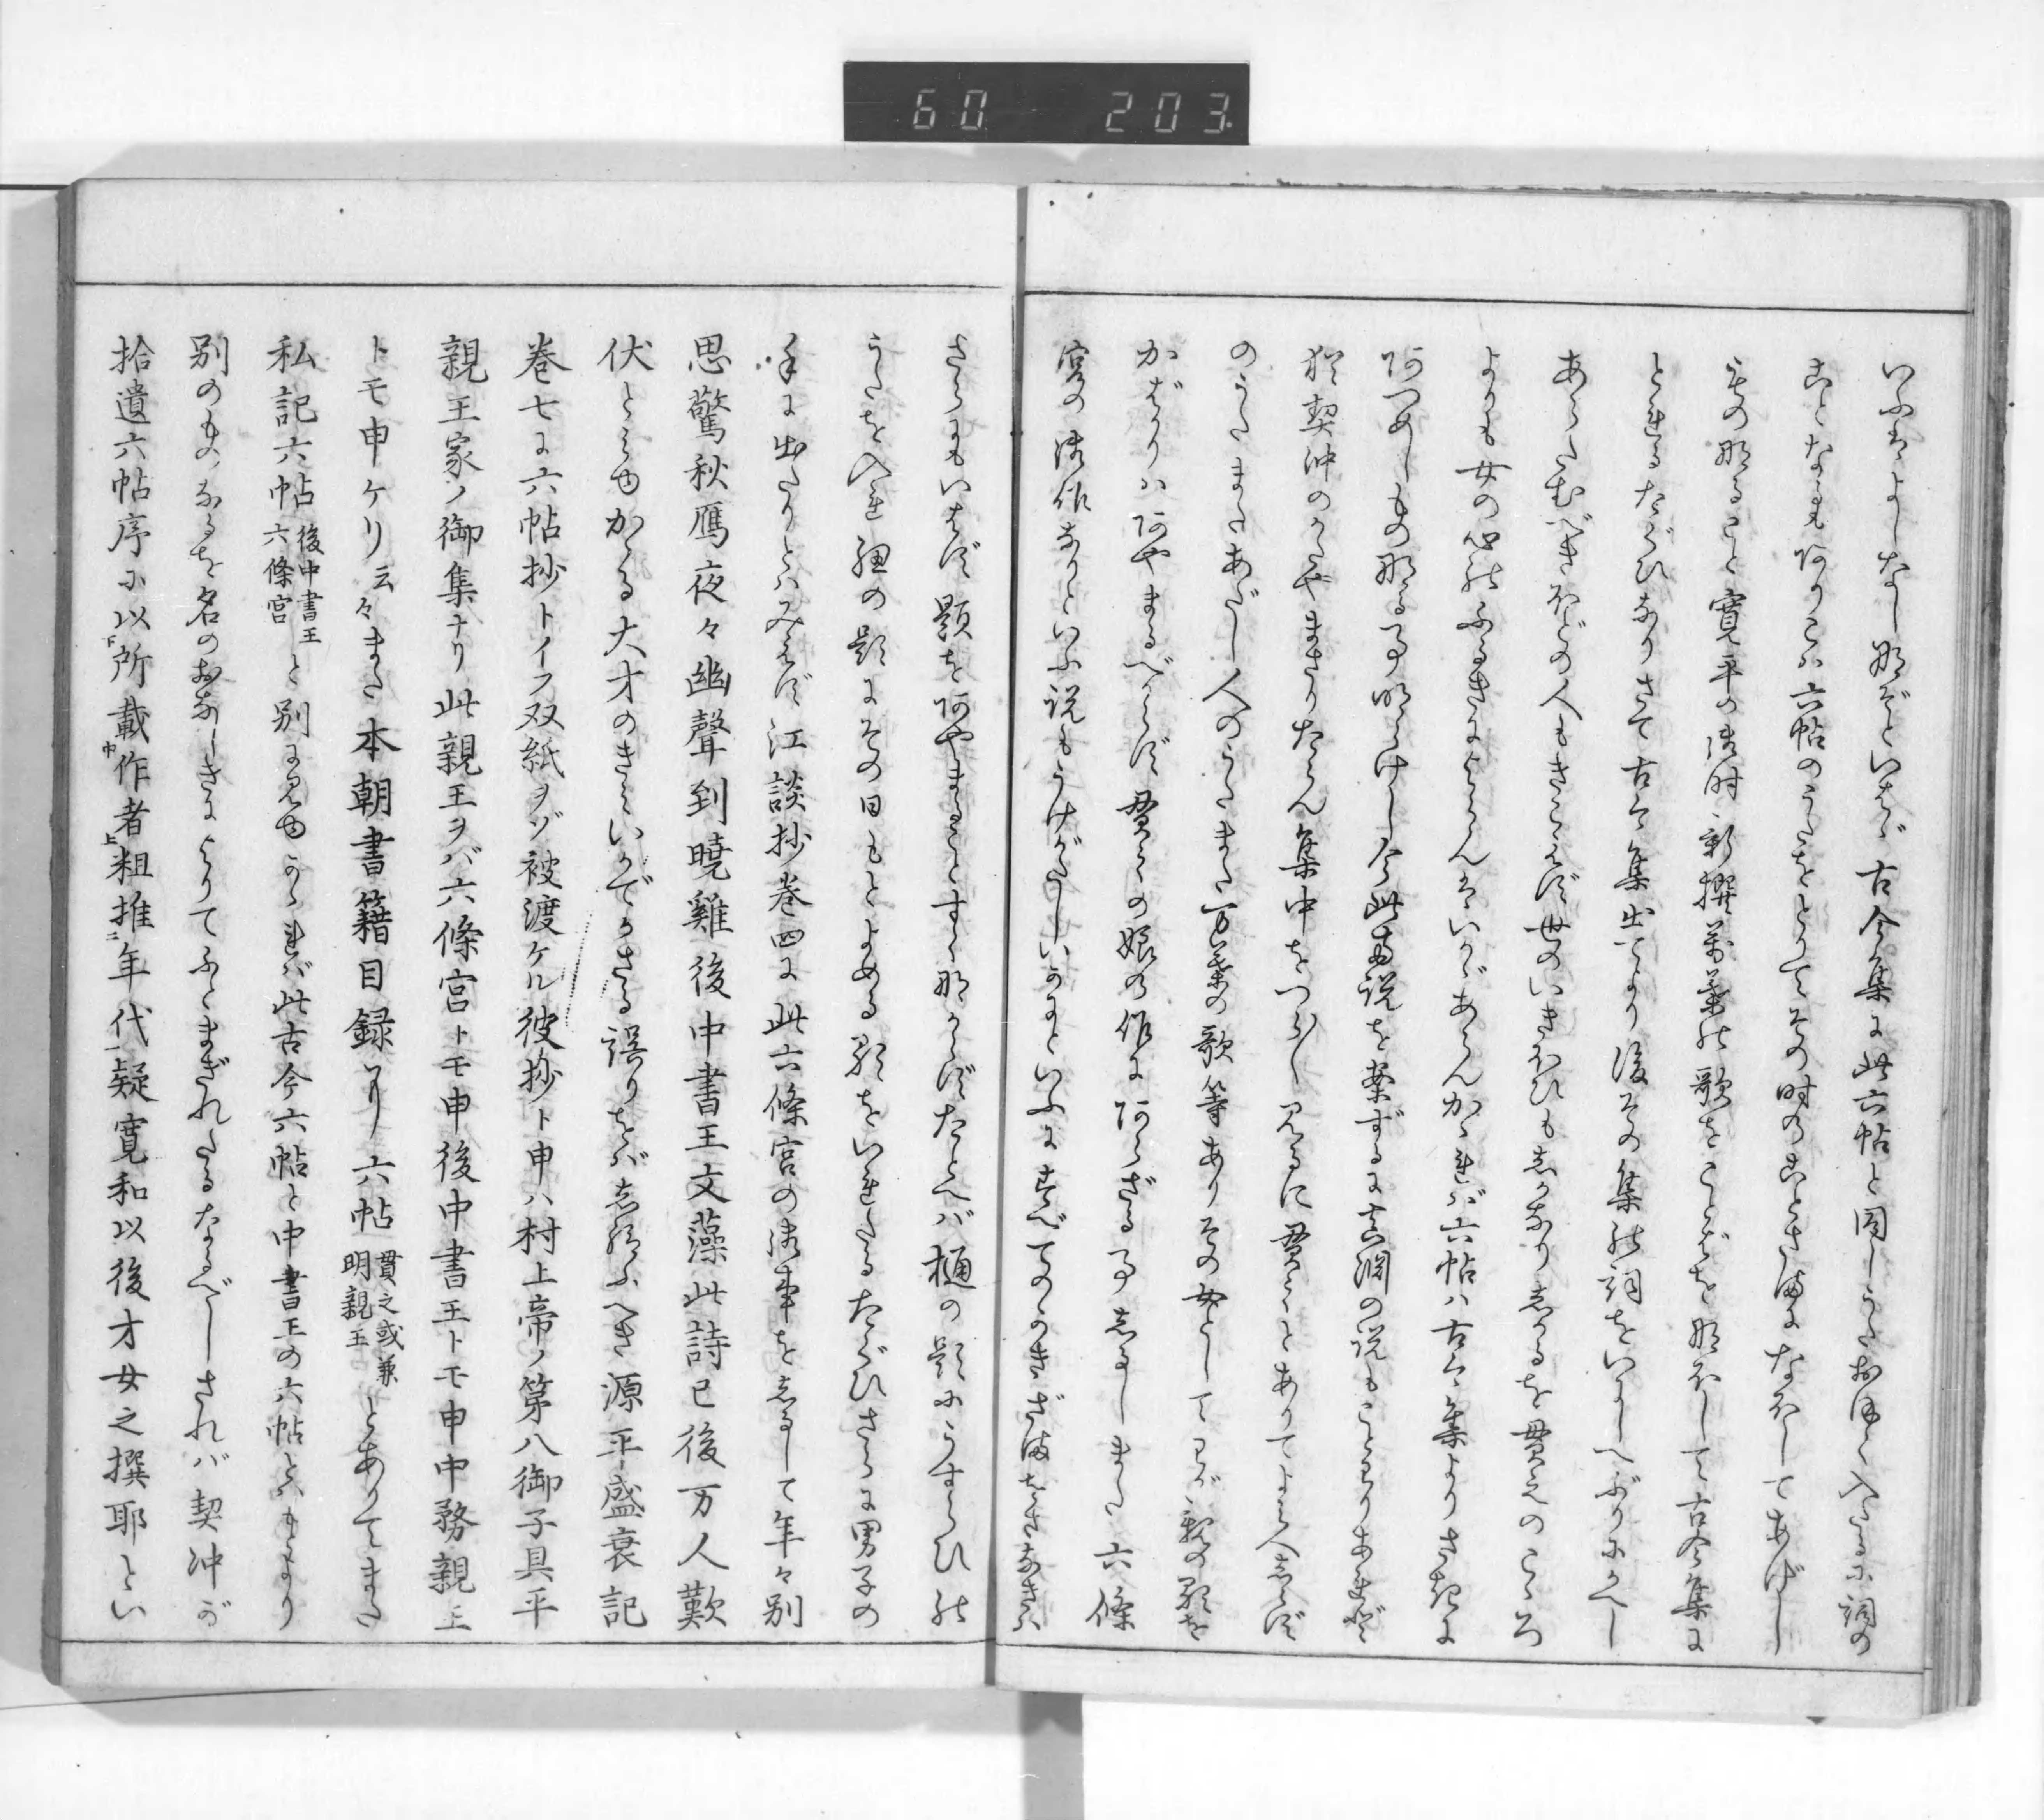 60 203
いふはよしなし那ぞといはゞ古今集に此六帖と同じうたおほく入たるに詞の
ことなるもありこハ六帖のうたをとりてその時のことさまになほしてあげし
もの那ること寛平の御時新撰萬葉の歌をことばを那ほして古今集に
とれるたぐひなりさて古今集出てより後その集の詞をいにしへぶりにかへし
あらたむべきほどの人もきこえず世のいきほひもしかなりしかるを貫之のこゝろ
よりも女の心のふるきによらんはいかゞあらんかゝれバ六帖ハ古今集よりさきに
あつめしもの那る事明らけし今此両説を案ずるに真淵の説もことわりあれど
猶契沖のかたやまさりたらん集中をつら〳〵見るに貫之とありてよみ人しらず
のうたまたあだし人のうたまた万葉の歌等ありその女としてわが親の歌を
かばかりハあやまるべからず貫之の娘の作にあらざる事しるしまた六條
宮の御作なりといふ説もうけがたしいかにといふにすべてのかきざまをさなきハ
さらにもいはず題をあやまることすく那からずたとへバ樋の題にうすらひの
うたを入れ紐の題にその日もとよめる歌をいれたるたぐひさらに男子の
手に出たりとハみえず江談抄巻四に此六條宮の御事をしるして年々別
思驚秋鴈夜々幽聲到曉雞後中書王文藻此詩已後万人歎
伏とみゆかゝる大才のきみいかでかさる誤りをバし給ふへき源平盛衰記
巻七に六帖抄トイフ双紙ヲゾ被渡ケル彼抄ト申ハ村上帝ノ第八御子具平
親王家ノ御集ナリ此親王ヲバ六條宮トモ申後中書王トモ申中務親王
トモ申ケリ云々また本朝書籍目録ニ六帖貫之或兼明親王とありてまた
私記六帖後中書王六條宮と別に見ゆかゝれバ此古今六帖と中書王の六帖とハもとより
別のものなるを名のおなじきによりてふとまぎれたるなるべしされバ契沖が
拾遺六帖序に以下所載作者粗推年代疑寛和以後才女之撰耶とい